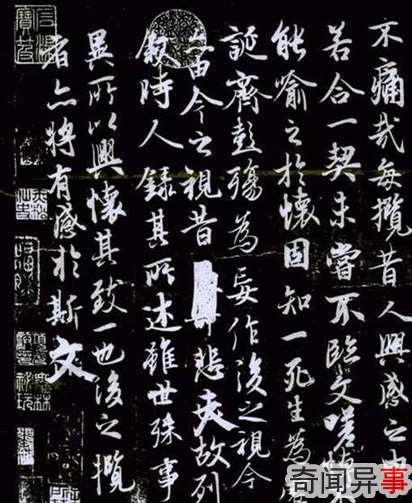 不痛哉每攬昔人興感之由
若合一契未嘗不臨文嗟悼
能喻之於懷固知一死生為
誕齊彭殤為妄作後之視今
今之視昔悲夫故列
敘時人錄其所述雖世殊事
異所以興懷其致一也後之攬
者亦將有感於斯文
奇闻异事